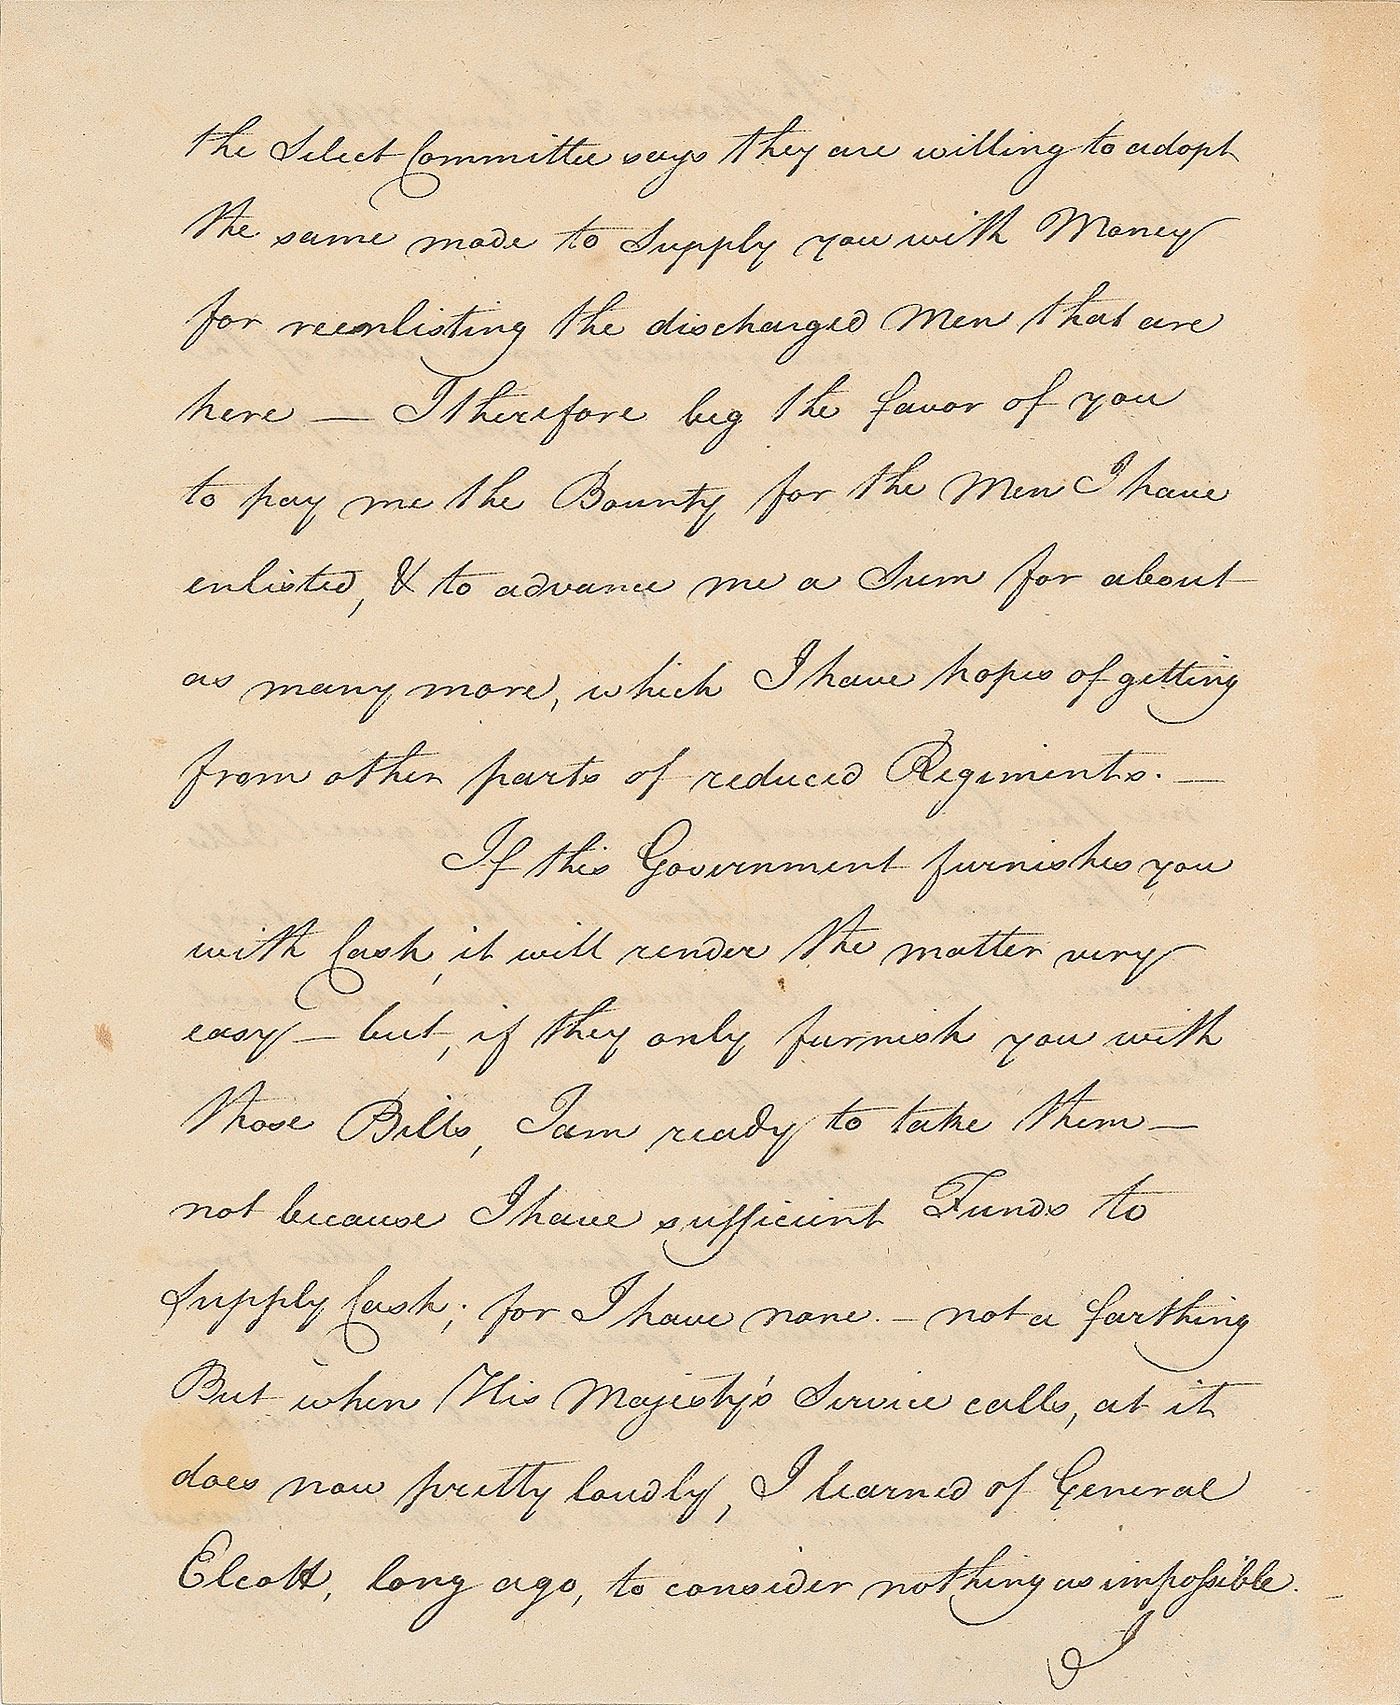 the Select Committee says they are willing to adopt
the same mode to Supply you with Money
for reenlisting the discharged Men that are
here — I therefore beg the favor of you
to pay me the Bounty for the Men I have
enlisted, & to advance me a Sum for about
as many more, which I have hopes of getting
from other parts of reduced Regiments. —
If this Government furnishes you
with Cash, it will render the matter very
easy — but, if they only furnish you with
those Bills, I am ready to take them —
not because I have sufficient Funds to
Supply Cash; for I have none. — not a farthing
But when His Majesty's Service calls, at it
does now pretty loudly, I learned of General
Elcott, long ago, to consider nothing as impossible.
I